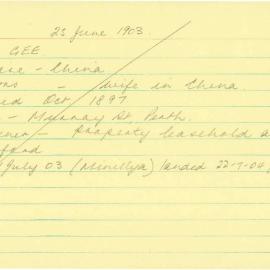 23 June 1903.
GEE
ese - China
ons - wife in China.
ed Oct. 1897
- Murray St, Perth.
ner - property leasehold a
ford
July 03 (Minilya) landed 22-7-04